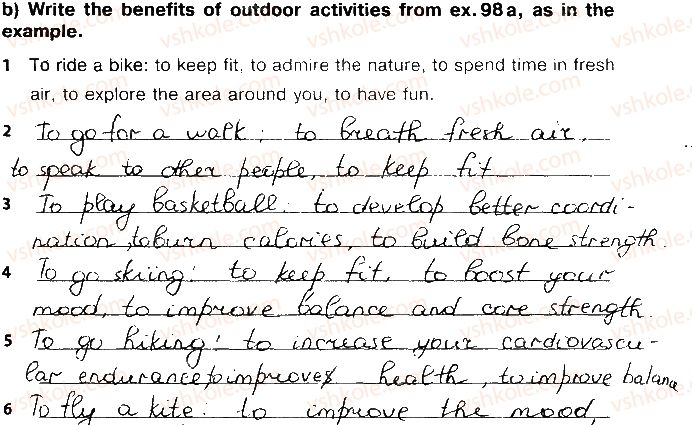 b) Write the benefits of outdoor activities from ex. 98 a, as in the
example.
1 To ride a bike: to keep fit, to admire the nature, to spend time in fresh
air, to explore the area around you, to have fun.
2 To go for a walk: to breath fresh air,
to speak to other people, to keep fit
3 To play basketball: to develop better coordi-
nation, to burn calories, to build bone strength.
4 To go skiing: to keep fit, to boost your
mood, to improve balance and core strength.
5 To go hiking: to increase your cardiovascu-
lar endurance, to improves health, to improve balance
6 To fly a kite: to improve the mood,